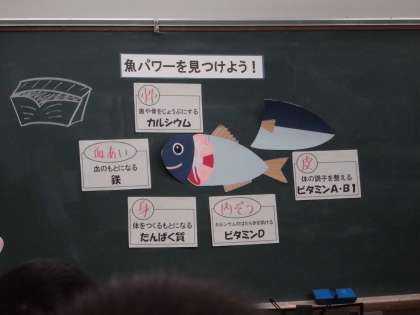 魚パワーを見つけよう！
骨
歯や骨をじょうぶにする
カルシウム
血あい
血のもとになる
鉄
皮
体の調子を整える
ビタミンA・B1
身
体をつくるもとになる
たんぱく質
内ぞう
カルシウムのはたらきを助ける
ビタミンD